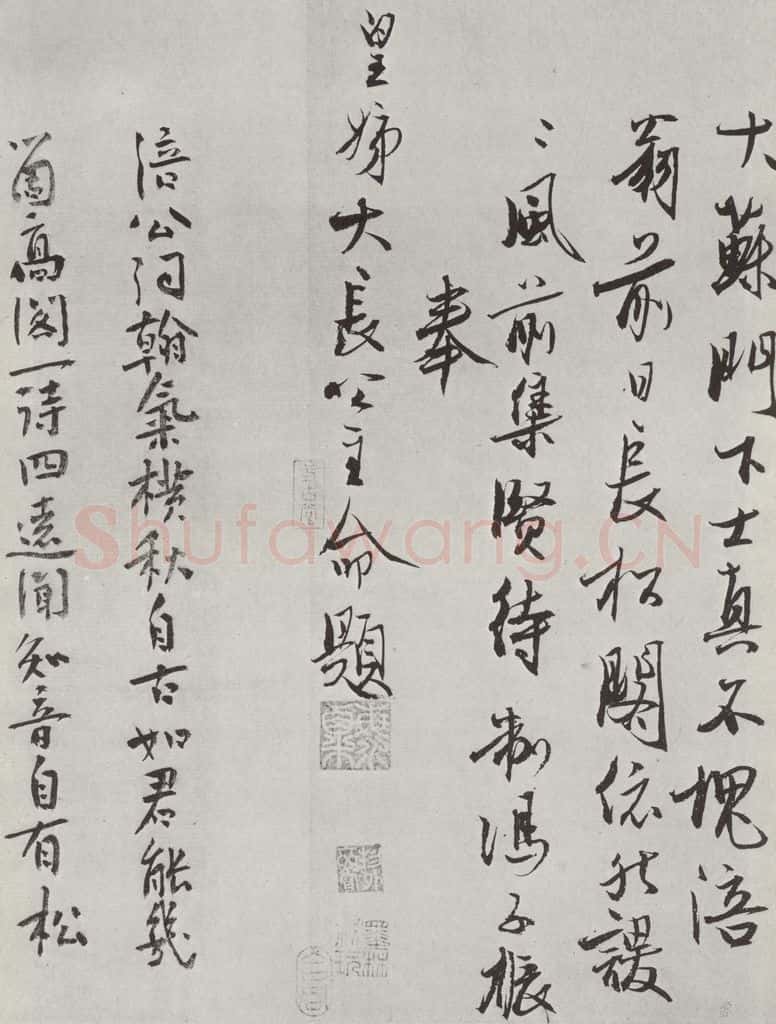 大蘇門下士真不愧涪
翁前日長松閣依然謖
〻風前集賢待制馮子振
奉
皇姊大長公主命題
涪公詞翰氣橫秋自古如君能幾
首高閣一詩四遠聞知音自有松
Shufawang.CN